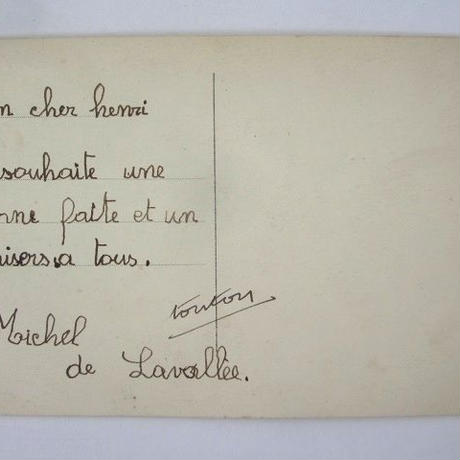 n cher henri
souhaite une
nne faite et un
aisers.a tous.
Michel
tonton
de Lavallée.